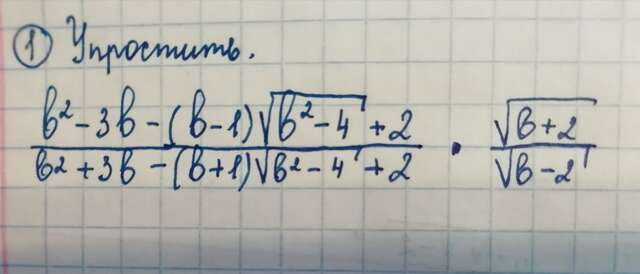 ① Упростить.
b² - 3b - (b-1)√(b² - 4) + 2
b² + 3b - (b+1)√(b² - 4) + 2
·
√(b+2)
√(b-2)